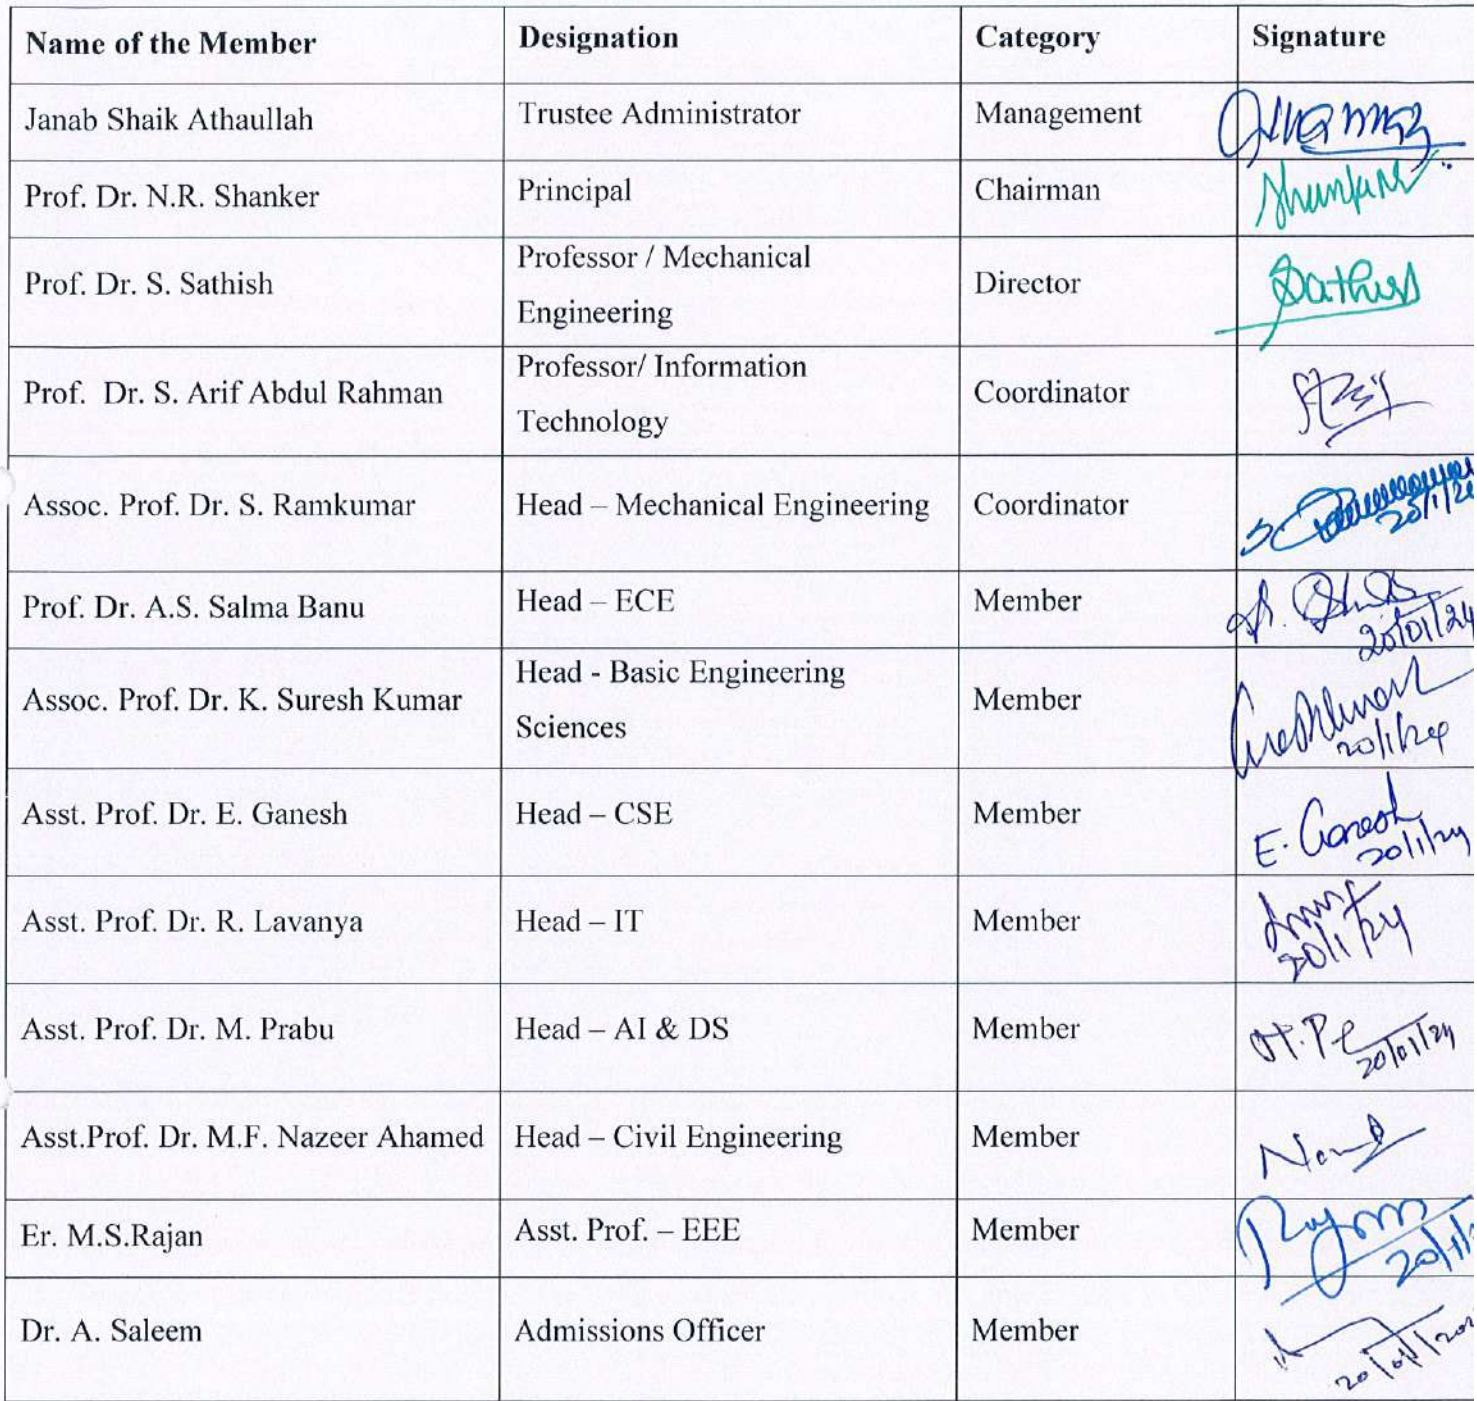 Name of the Member Designation Category Signature
Janab Shaik Athaullah Trustee Administrator Management
Prof. Dr. N.R. Shanker Principal Chairman
Prof. Dr. S. Sathish Professor / Mechanical Director Sathish
Engineering
Prof. Dr. S. Arif Abdul Rahman Professor/ Information Coordinator
Technology
Assoc. Prof. Dr. S. Ramkumar Head – Mechanical Engineering Coordinator
20/1/2
Prof. Dr. A.S. Salma Banu Head – ECE Member
20/01/24
Assoc. Prof. Dr. K. Suresh Kumar Head - Basic Engineering Member
Sciences
20/1/24
Asst. Prof. Dr. E. Ganesh Head – CSE Member E. Ganesh
20/1/24
Asst. Prof. Dr. R. Lavanya Head – IT Member
20/1/24
Asst. Prof. Dr. M. Prabu Head – AI & DS Member
20/01/24
Asst.Prof. Dr. M.F. Nazeer Ahamed Head – Civil Engineering Member
Er. M.S.Rajan Asst. Prof. – EEE Member
20/1/
Dr. A. Saleem Admissions Officer Member
20/01/202